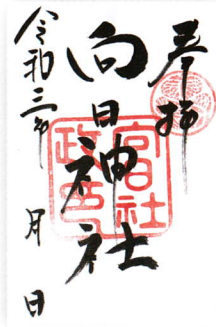 奉拝
向日神社
令和三年 月 日